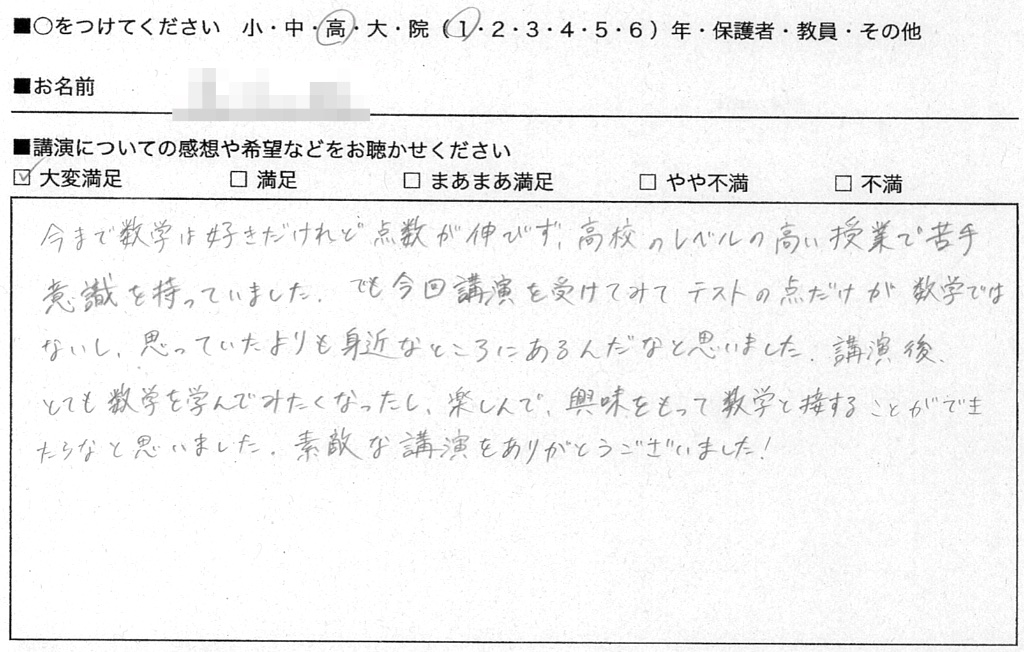 ■○をつけてください 小・中・高・大・院（1・2・3・4・5・6）年・保護者・教員・その他
■お名前
■講演についての感想や希望などをお聴かせください
☑ 大変満足 □ 満足 □ まあまあ満足 □ やや不満 □ 不満
今まで数学は好きだけれど点数が伸びず、高校のレベルの高い授業で苦手
意識を持っていました。でも今回講演を受けてみてテストの点だけが数学では
ないし、思っていたよりも身近なところにあるんだなと思いました。講演後、
とても数学を学んでみたくなったし、楽しんで、興味をもって数学と接することができ
たらなと思いました。素敵な講演をありがとうございました！